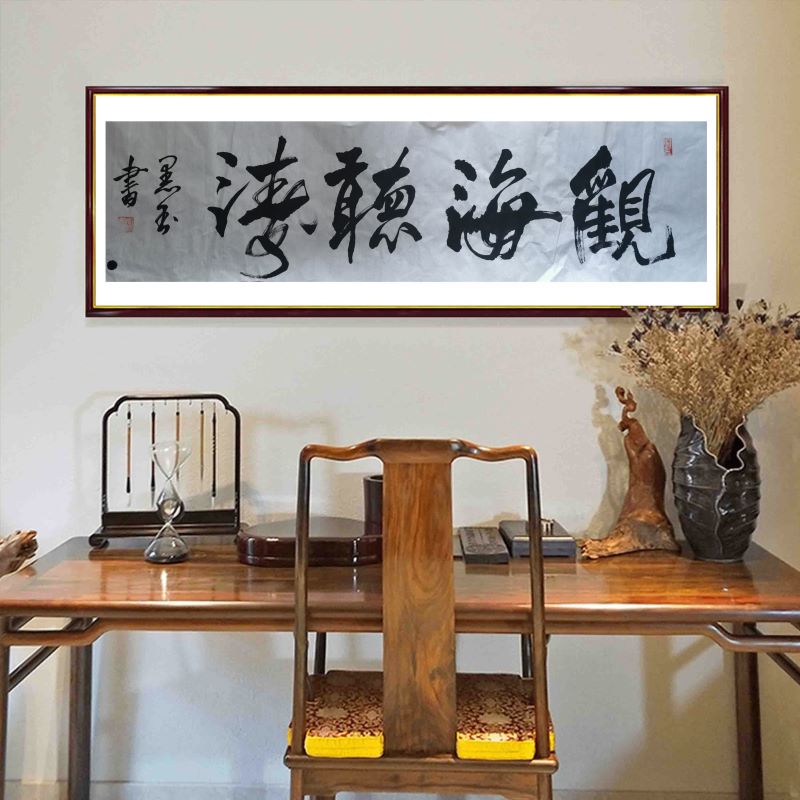 觀海聽濤
墨玉
書